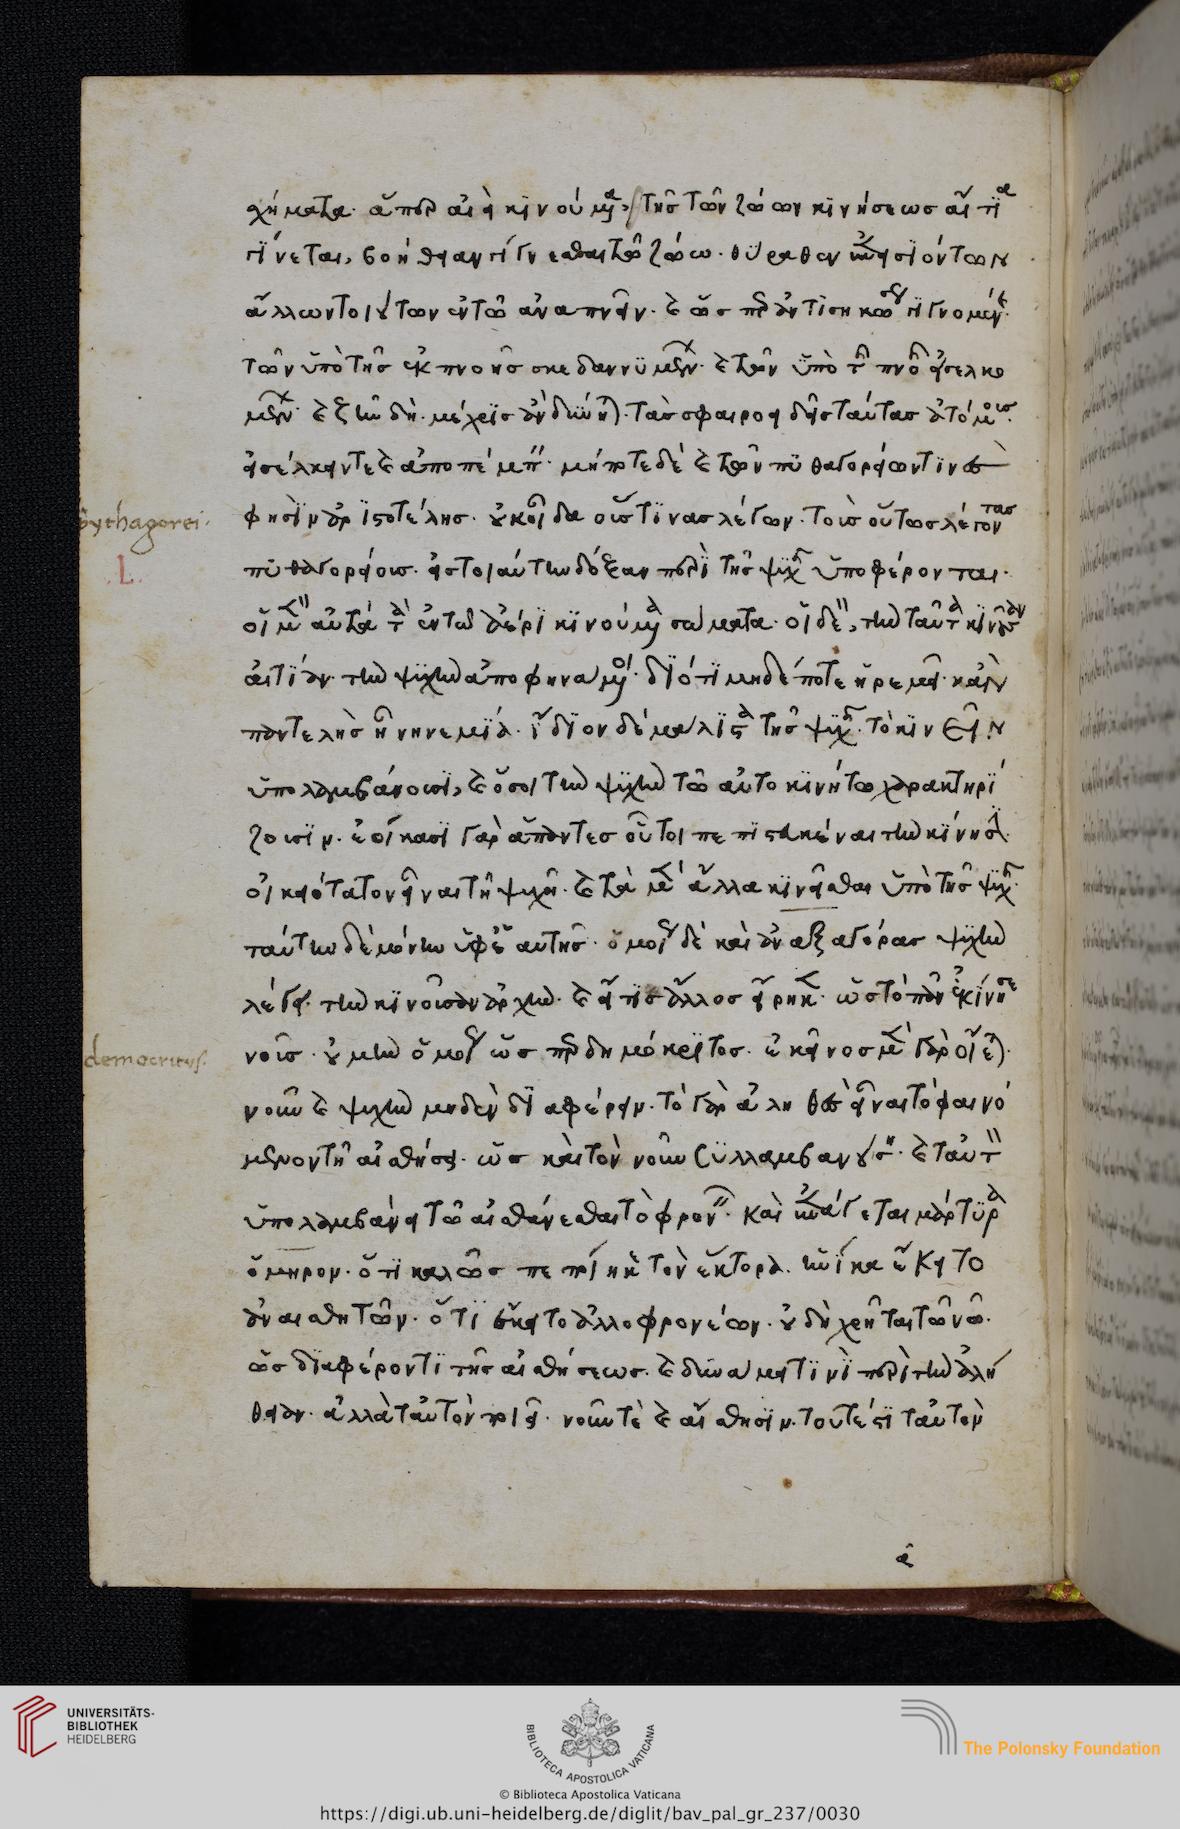 χήματα· ἅπερ ἀεὶ κινούμενα, τῆς τῶν ζώων κινήσεως αἴτια
γίνεται, βοήθειαν γίγνεσθαι τῶ ζώω· θύραθεν ἐπεισϊόντων
ἄλλων τοιούτων ἐν τῶ ἀναπνεῖν· καὶ ὥσπερ ἀντισηκώσεως γιγνομένης
τῶν ὑπὸ τῆς ἐκπνοῆς σκεδαννϋμένων· καὶ τῶν ὑπὸ τῆς πνοῆς εἰσελκο
μένων· καὶ ζῆν δὴ· μέχρις ἂν δύνηται· τὰς σφαιροειδεῖς ταύτας ἀτόμους
εἰσέλκειν τε καὶ ἀποπέμπειν· μήποτε δὲ καὶ τῶν πυθαγορείων τινὲς
φησὶν ἀριστοτέλης· οὐκ οἶδα οὕς τινας λέγων· τοὺς οὕτως λέγοντας
πυθαγορείους· εἰς τοιαύτην δόξαν περὶ τῆς ψυχῆς ὑποφέρονται·
οἱ μὲν αὐτὰ τὰ ἐν τῶ ἀέρι κινούμενα σώματα· οἱ δὲ, τὴν ταῦτα κινοῦσαν
αἰτίαν· τὴν ψυχὴν ἀποφηνάμενοι· διότι μηδέποτε ἠρεμεῖ· κἂν
παντελὴς ἦ νηνεμία· ἴδιον δὲ μάλιστα τῆς ψυχῆς· τὸ κινεῖν
ὑπολαμβάνουσι, καὶ ὅσοι τὴν ψυχὴν τῶ αὐτοκινήτω χαρακτηρί
ζουσιν· ἐοίκασι γὰρ ἅπαντες οὗτοι πεπιστευκέναι τὴν κίνησιν
οἰκειότατον εἶναι τῆ ψυχῆ· καὶ τὰ μὲν ἄλλα κινεῖσθαι ὑπὸ τῆς ψυχῆς·
ταύτην δὲ μόνην ὑφ' ἑαυτῆς· ὁμοίως δὲ καὶ ἀναξαγόρας ψυχὴν
λέγει· τὴν κινοῦσαν ἀρχὴν· καὶ εἴ τις ἄλλος εἴρηκεν· ὡς τὸ πᾶν ἐκίνησε
νοῦς· οὐ μὴν ὁμοίως ὥσπερ δημόκριτος· ἐκεῖνος μὲν γὰρ οἴεται
νοῦν καὶ ψυχὴν μηδὲν διαφέρειν· τὸ γὰρ ἀληθὲς εἶναι τὸ φαινό
μενον τῆ αἰσθήσει· ὡς καὶ τὸν νοῦν συλλαμβανούσης· καὶ ταὐτὸν
ὑπολαμβάνει τῶ αἰσθάνεσθαι τὸ φρονεῖν· καὶ ἐπάγεται μάρτυρα
ὅμηρον· ὅτι καλῶς πεποίηκε τὸν ἕκτορα· ἡνίκα ἔκειτο
ἀναισθητῶν· ὅτι κεῖτο ἀλλοφρονέων· οὐ δὴ χρῆται τῶ νῶ·
ὡς διαφέροντι τῆς αἰσθήσεως· καὶ δυνάμει τινὶ περὶ τὴν ἀλή
θειαν· ἀλλὰ ταὐτὸν ποιεῖ· νοῦν τὲ καὶ αἴσθησιν· τουτέστι ταὐτὸν
pythagorei·
.L.
democritus.
UNIVERSITÄTS-
BIBLIOTHEK
HEIDELBERG
BIBLIOTECA APOSTOLICA VATICANA
The Polonsky Foundation
© Biblioteca Apostolica Vaticana
https://digi.ub.uni-heidelberg.de/diglit/bav_pal_gr_237/0030